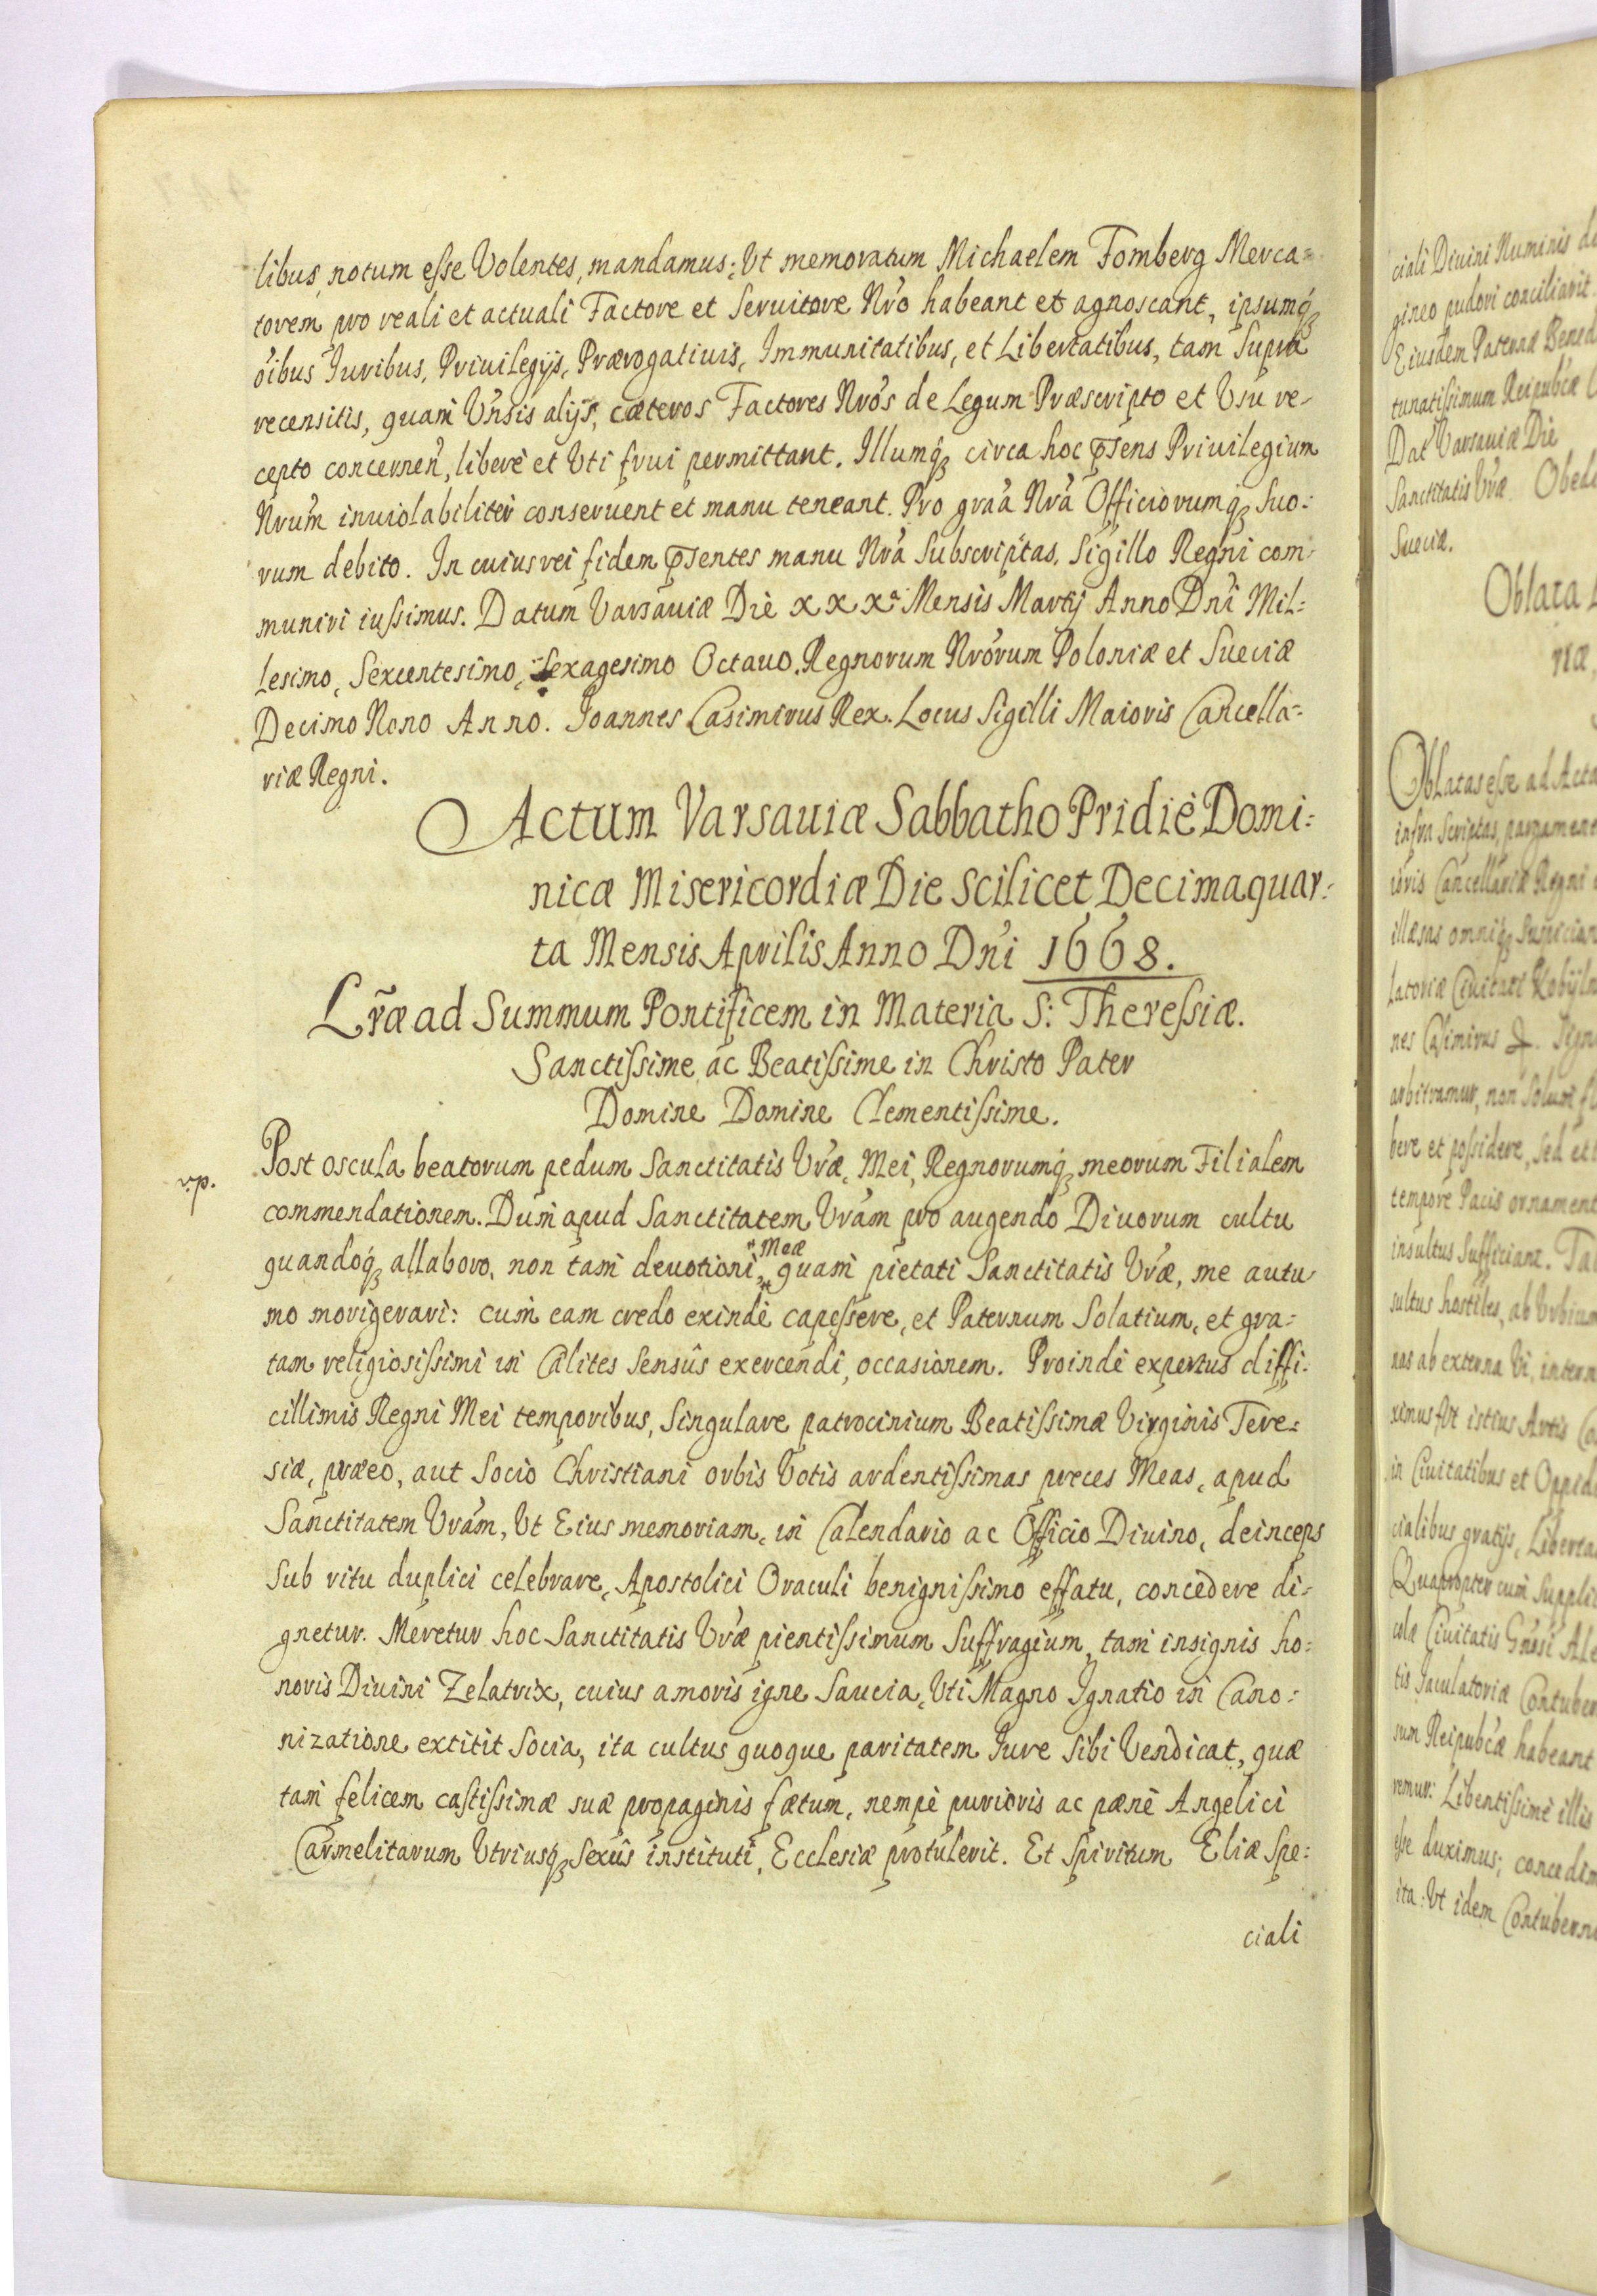 libus, notum esse Volentes, mandamus; Vt memoratum Michaelem Fomberg Merca=
torem pro reali et actuali Factore et Seruitore Nro habeant et agnoscant, ipsumq3
oibus Juribus, Priuilegijs, Prærogatiuis, Immunitatibus, et Libertatibus, tam supra
recensitis, quam Vnsis alijs, cæteros Factores Nros de Legum Præscripto et Vsu re-
cepto concernen, liberè et Vti frui permittant. Illumq3 circa hoc p̄sens Priuilegium
Nrum inuiolabiliter conseruent et manu teneant. Pro graa Nra Officiorumq3 suo:
rum debito. In cuius rei fidem p̄sentes manu Nra Subscriptas, Sigillo Regni com-
muniri iussimus. Datum Varsauiæ Die XXXa Mensis Martij Anno Dni Mil:
lesimo, Sexcentesimo, Sexagesimo Octauo. Regnorum Nrorum Poloniæ et Sueciæ
Decimo Nono Anno. Joannes Casimirus Rex. Locus Sigilli Maioris Cancella=
riæ Regni.
Actum Varsauiæ Sabbatho Pridiè Domi:
nicæ Misericordiæ Die scilicet Decimaquar:
ta Mensis Aprilis Anno Dni 1668.
Lr̃æ ad Summum Pontificem in Materia S: Theressiæ.
Sanctissime ac Beatissime in Christo Pater
Domine Domine Clementissime.
Post oscula beatorum pedum Sanctitatis Vræ, Mei, Regnorumq3 meorum Filialem
r.p.
commendationem. Dum apud Sanctitatem Vram pro augendo Diuorum cultu
quandoq3 allaboro, non tam deuotioni Meæ quam pietati Sanctitatis Vræ, me autu-
mo morigerari: cum eam credo exindè capessere, et Paternum Solatium, et gra=
tam religiosissimi in Cælites sensûs exercendi, occasionem. Proindè expertus diffi:
cillimis Regni Mei temporibus, Singulare patrocinium Beatissimæ Virginis Tere=
siæ, præeo, aut Socio Christiani orbis Votis ardentissimas preces Meas, apud
Sanctitatem Vram, Vt Eius memoriam, in Calendario ac Officio Diuino, deinceps
Sub ritu duplici celebrare, Apostolici Oraculi benignissimo effatu, concedere di-
gnetur. Meretur hoc Sanctitatis Vræ pientissimum Suffragium, tam insignis ho:
noris Diuini Zelatrix, cuius amoris igne Saucia, Vti Magno Ignatio in Cano:
nizatione extitit Socia, ita cultus quoque paritatem Jure sibi Vendicat, quæ
tam felicem castissimæ suæ propaginis fætum, nempè purioris ac pænè Angelici
Carmelitarum Vtriusq3 Sexûs instituti, Ecclesiæ protulerit. Et Spiritum Eliæ Spe:
ciali
ciali Diuini Numinis
gineo pudori conciliarit
Eiusdem Paternæ Bened
tunatissimum Reipubcæ
Dat Varsauiæ Die
Sanctitatis Vræ Obed
Sueciæ.
Oblata
riæ,
Oblatas esse ad Acta
infra Scriptas, pargament
ioris Cancellariæ Regni
illæsas omniq3 suspicion
latoriæ Ciuitati Kobÿln
nes Casimirus Sign
arbitramur, non solum
bere et possidere, sed et
tempore Pacis ornament
insultus Sufficiant. Ta
sultus hostiles, ab Vrbium
nas ab externa Vi, intern
ximus, Vt istius Artis
in Ciuitatibus et Oppid
cialibus gratijs, Liberta
Quapropter cum Suppli
Ciuitatis
tis Jaculatoriæ Contuber
sum Reipubcæ habeant
remur: Libentissimè illis
esse duximus; concedim
ita: Vt idem Contuberni